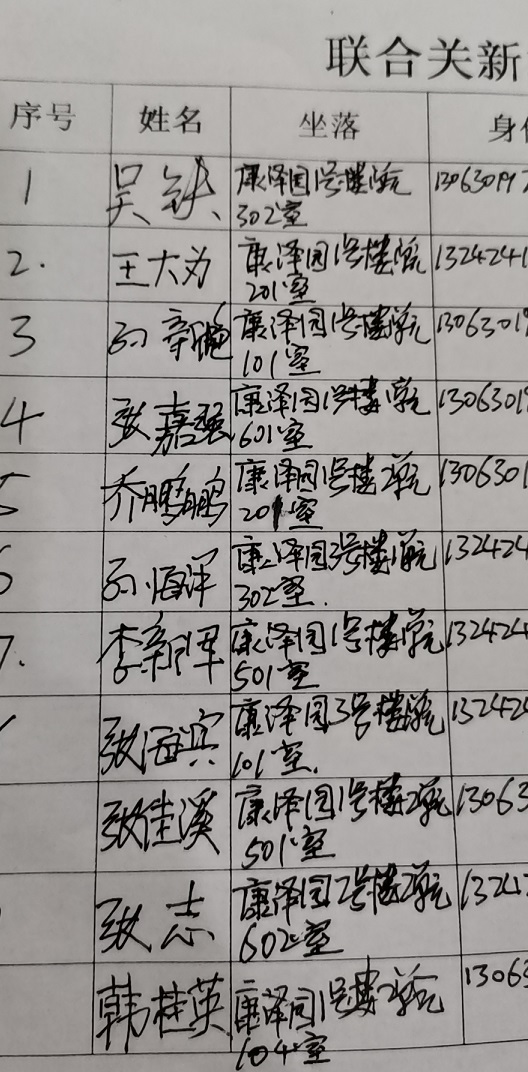 联合关新
序号 姓名 坐落 身份
1 吴铁 康泽园1号楼1单元 130630197
302室
2. 王大为 康泽园1号楼1单元 1324241
201室
3 孙新艳 康泽园1号楼1单元 13063019
101室
4 张嘉强 康泽园1号楼1单元 13063019
601室
5 乔鹏鹏 康泽园1号楼2单元 1306301
201室
孙海洋 康泽园3号楼1单元 132424
302室.
7. 李新晖 康泽园1号楼1单元 132424
501室
张海宾 康泽园3号楼1单元 132424
101室.
张佳溪 康泽园1号楼2单元 13063
501室
张志 康泽园2号楼2单元 1324
602室
韩桂英 康泽园1号楼2单元 13063
104室